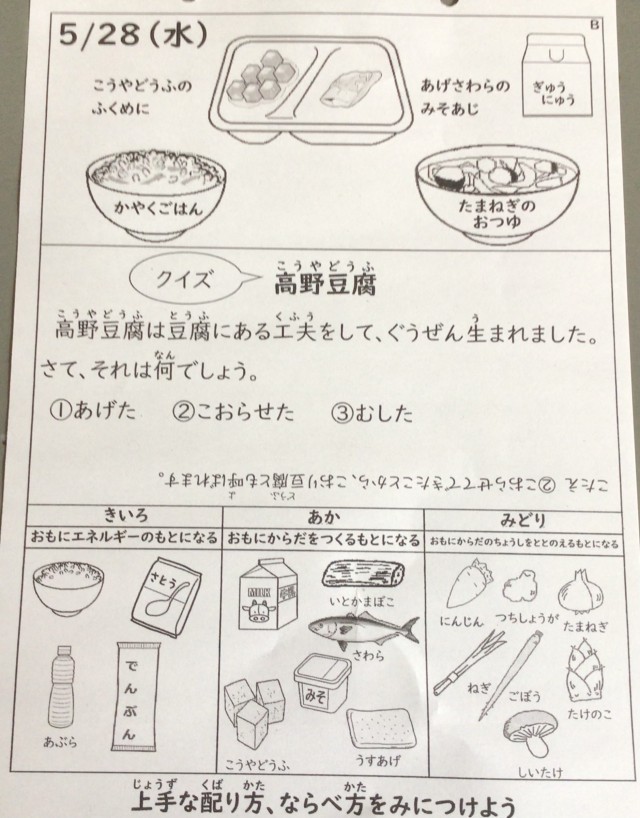 5/28(水)
B
こうやどうふの
ふくめに
あげさわらの
みそあじ
ぎゅう
にゅう
かやくごはん
たまねぎの
おつゆ
クイズ
こうやどうふ
高野豆腐
こうやどうふ とうふ くふう う
高野豆腐は豆腐にある工夫をして、ぐうぜん生まれました。
なん
さて、それは何でしょう。
①あげた ②こおらせた ③むした
こたえ ②こおらせてできたことから、こおり豆腐とも呼ばれます。
どうふ よ
きいろ
おもにエネルギーのもとになる
さとう
あぶら
でんぷん
あか
おもにからだをつくるもとになる
MILK
牛乳
いとかまぼこ
さわら
みそ
こうやどうふ
うすあげ
みどり
おもにからだのちょうしをととのえるもとになる
にんじん
つちしょうが
たまねぎ
ねぎ
ごぼう
たけのこ
しいたけ
じょうず くば かた かた
上手な配り方、ならべ方をみにつけよう